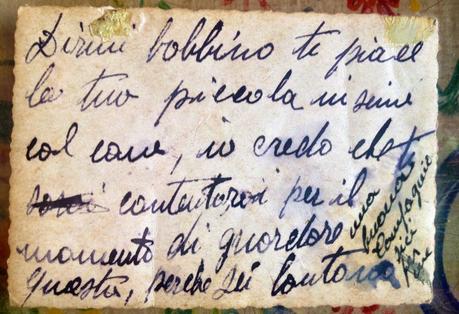 Dirmi bobbino ti piace
la tuo piccola
col cane, io credo che ti
contenterai per il
momento di guardare
questa, perche sei lontano
una
compagnia